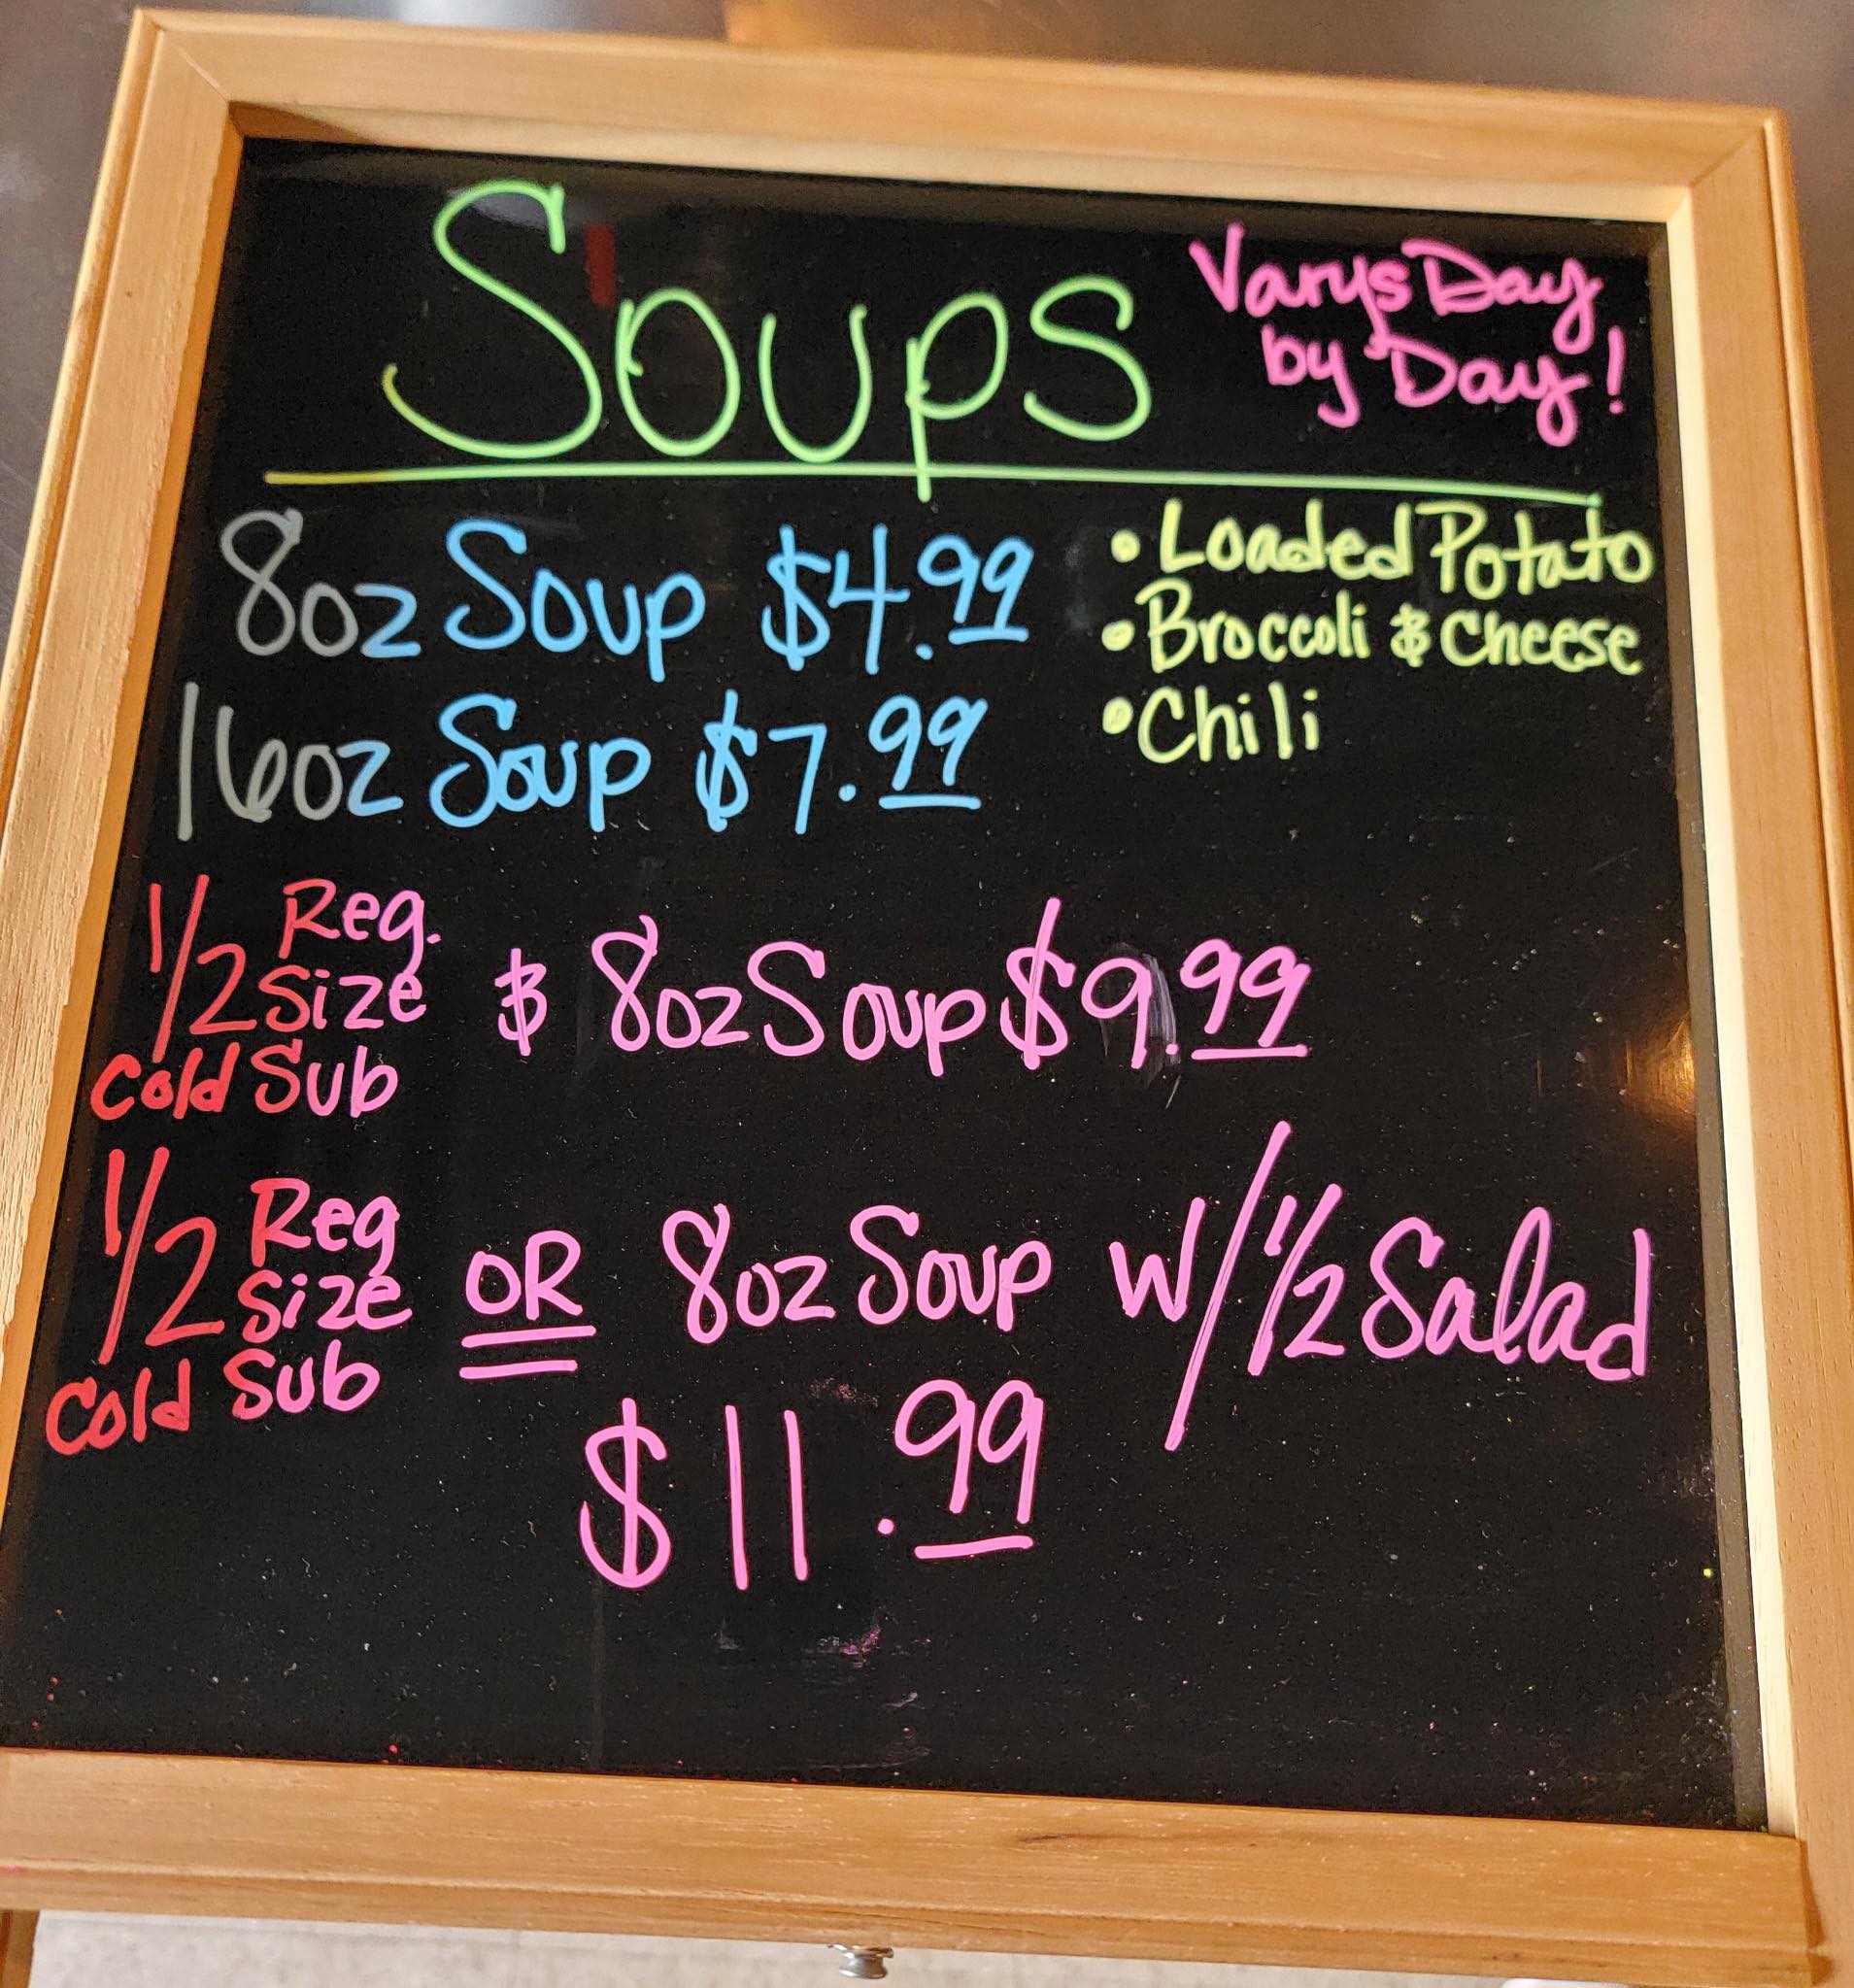 Soups
Varys Day
by Day!
8oz Soup $4.99
16oz Soup $7.99
• Loaded Potato
• Broccoli & Cheese
• Chili
1/2 Reg. Size Cold Sub & 8oz Soup $9.99
1/2 Reg Size Cold Sub OR 8oz Soup w/ 1/2 Salad
$11.99